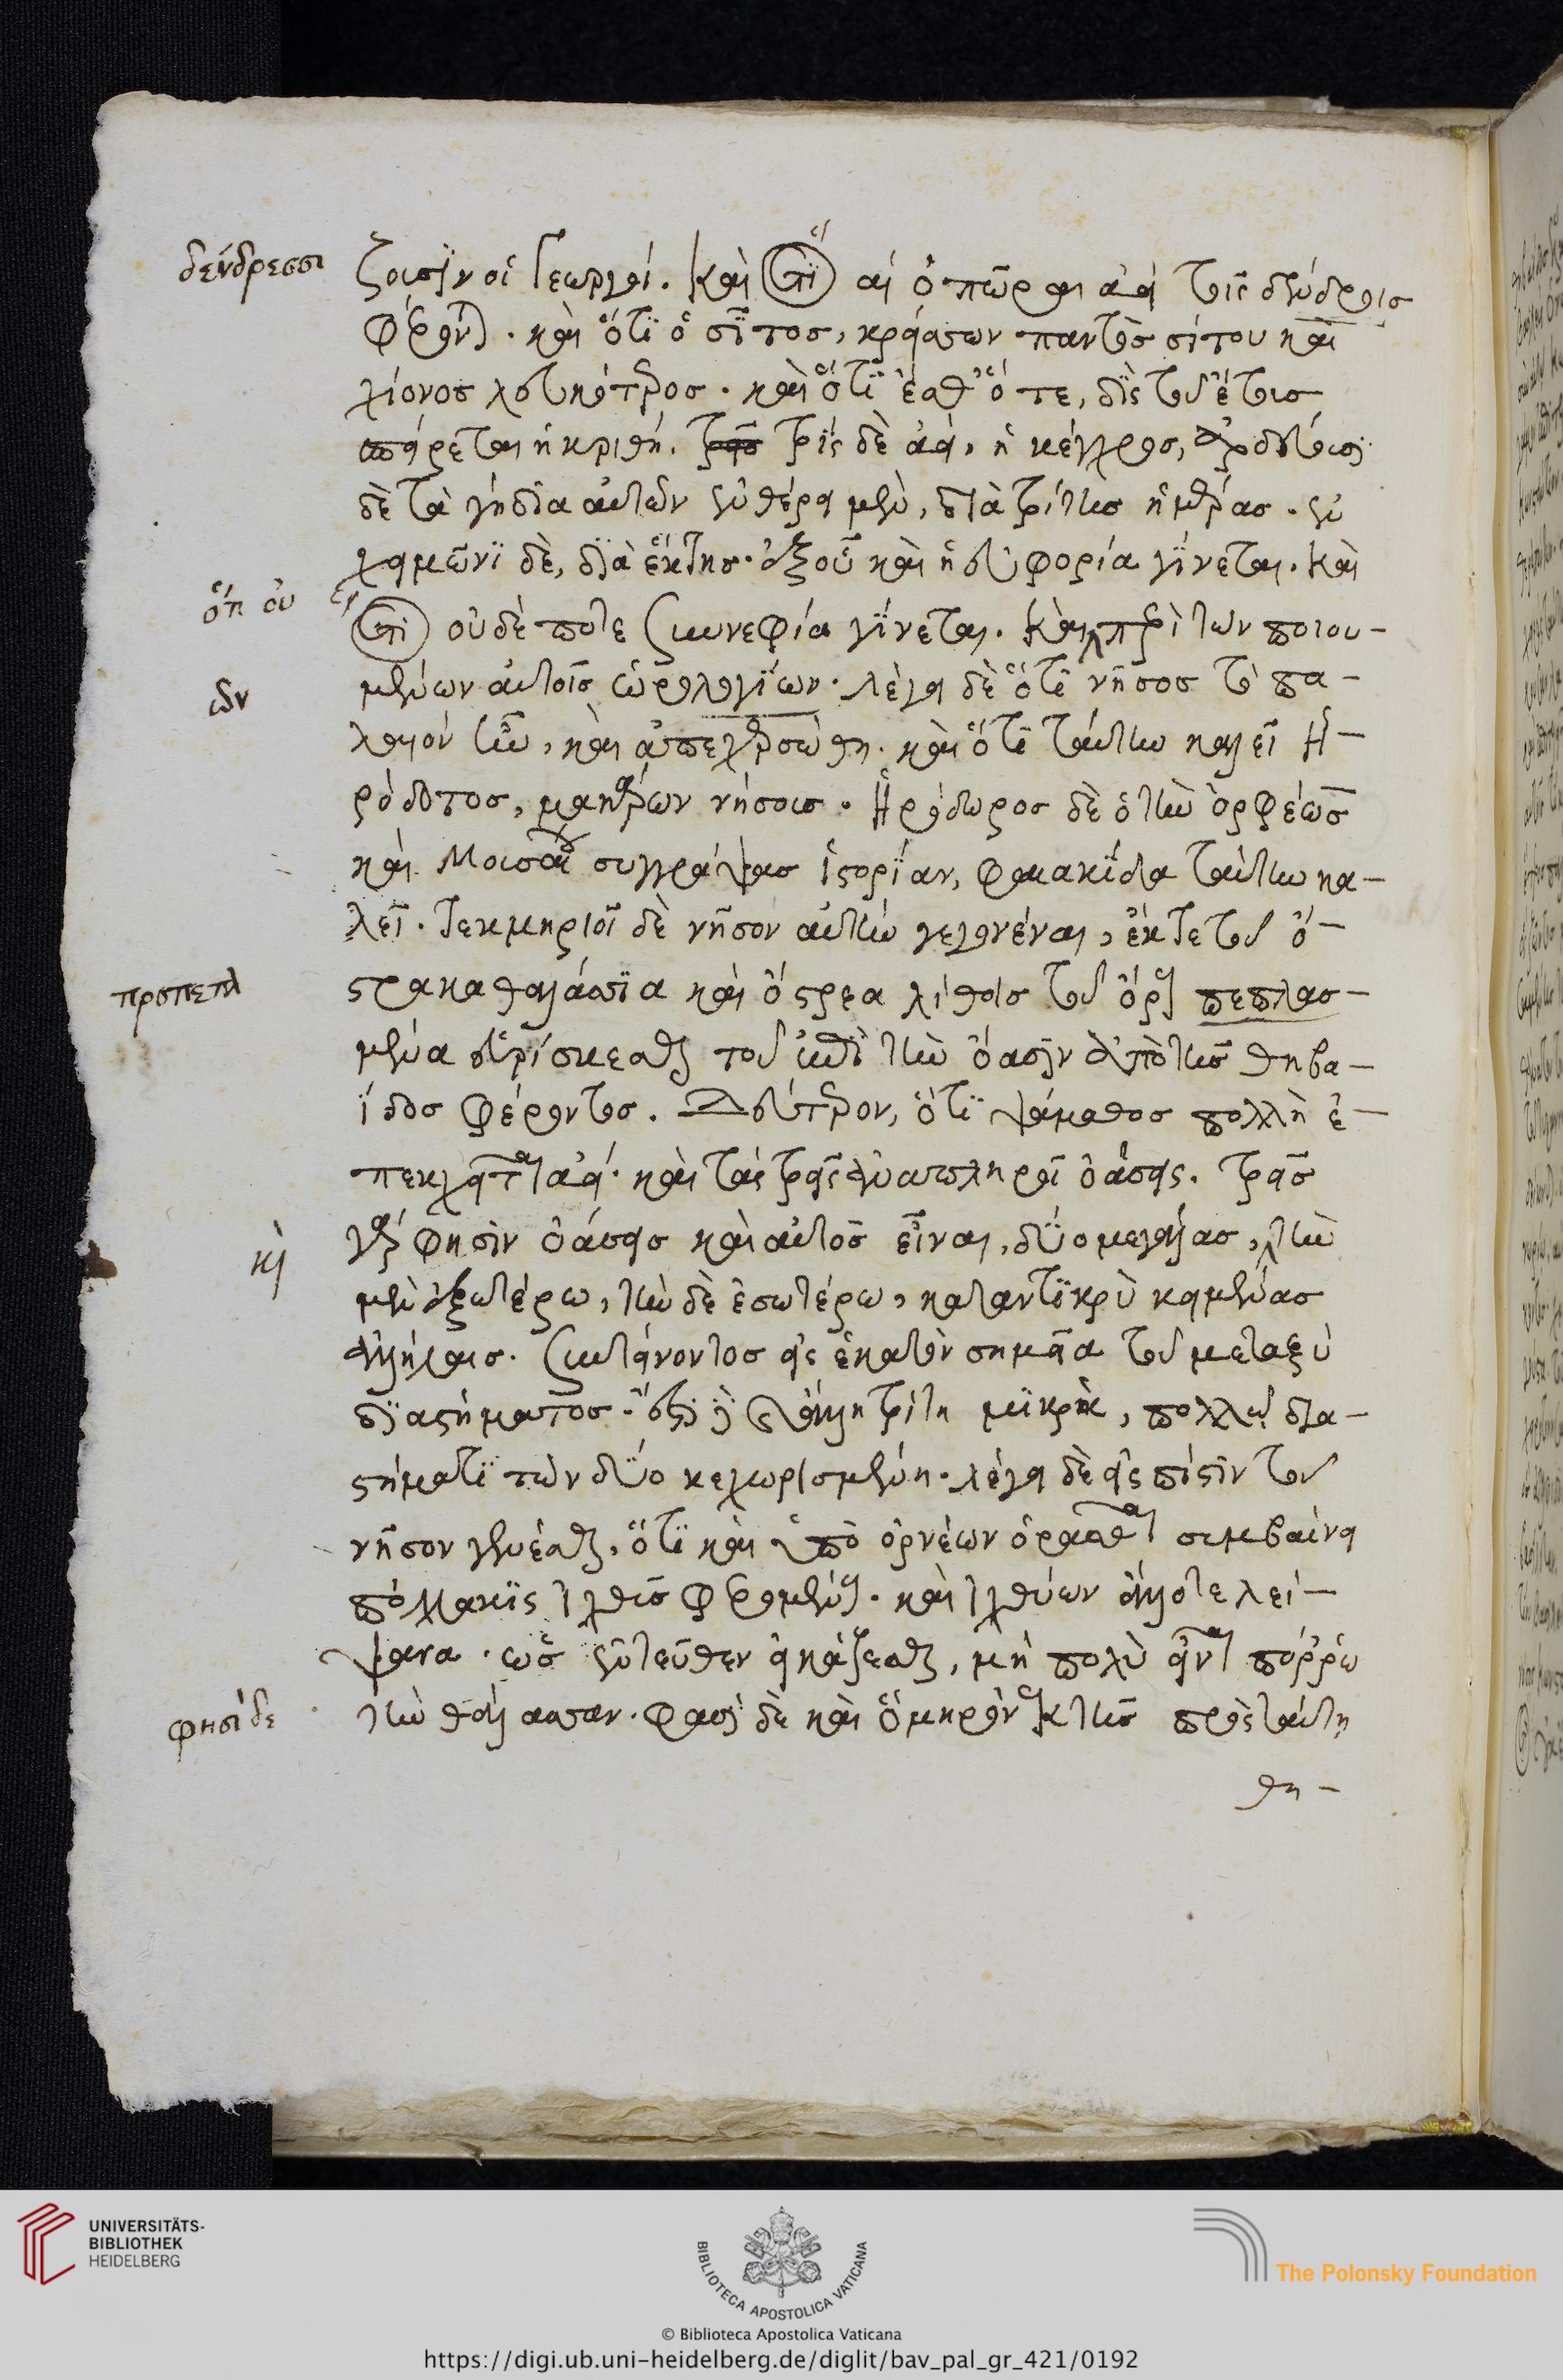 δένδρεσσι
ζουσϊν οἱ Γεωργοί. Καὶ ὅτϊ αἱ ὀπῶραι ἀεὶ τοῖς δένδροισ
φέρονται. καὶ ὅτϊ ὁ σῖτοσ, κρείσσων παντὸσ σίτου καὶ
χίονοσ λευκότεροσ. καὶ ὅτϊ ἔσθ' ὅτε, δὶς τοῦ ἔτουσ
σπείρεται ἡ κριθή. τρεῖσ τρὶς δὲ ἀεὶ, ἡ κέγχροσ, ἀρδεύουσϊ
δὲ τὰ γήδϊα αὐτῶν ἐν θέρει μὲν, διὰ τρίτησ ἡμέρασ. ἐν
χειμῶνϊ δὲ, διὰ ἕκτησ. ἐξ οὗ καὶ ἡ εὐφορία γίνεται. Καὶ
ὅτι οὐ
ὅτϊ οὐδὲ ποτε συννεφία γίνεται. Καὶ περὶ τῶν ποιου-
ὧν
μένων αὐτοῖσ ὡρολογίων. λέγει δὲ ὅτϊ νῆσοσ τὸ πα-
λαιόν ἦν, καὶ ἀπεχερσώθη. καὶ ὅτϊ ταύτην καλεῖ Ἡ-
ρόδοτοσ, μακάρων νήσουσ. Ἡρόδωροσ δὲ ὁ τὴν ὀρφέωσ
καὶ Μουσαίου συγγράψασ ἱστορΐαν, φαιακΐδα ταύτην κα-
λεῖ. τεκμηριοῖ δὲ νῆσον αὐτὴν γεγονέναι, ἐκ τε τοῦ ὄ-
προσπεπλ
στρακα θαλάσσϊα καὶ ὄστρεα λίθοισ τοῦ ὄρους πεπλασ-
μένα εὑρίσκεσθαι τοῦ ἐπὶ τὴν ὄασϊν ἀπὸ τῆσ θηβα-
ΐδοσ φέροντοσ. Δεύτερον, ὅτϊ ψάμαθοσ πολλὴ ἐ-
πεκχεῖται ἀεὶ. καὶ τὰς τρεῖς ἀναπληροῖ ὀάσεις. τρεῖσ
κὶ
γάρ φησϊν ὀάσεισ καὶ αὐτὸσ εἶναι, δΰο μεγάλασ, τὴν
μὲν ἐξωτέρω, τὴν δὲ ἐσωτέρω, καταντϊκρὺ κειμένασ
ἀλλήλαισ. συντείνοντοσ εἰς ἑκατὸν σημεῖα τοῦ μεταξὺ
δϊαστήματοσ. ἔστϊ καὶ ἄλλη τρίτη μϊκρὰ, πολλῷ δια-
στήματϊ τῶν δΰο κεχωρισμένη. λέγει δὲ εἰς πίστϊν τοῦ
νῆσον γενέσθαι, ὅτϊ καὶ ὑπὸ ὀρνέων ὁρᾶσθαι συμβαίνει
πολλακϊς ἰχθῦσ φερομένους. καὶ ἰχθύων ἄλλοτε λεί-
ψανα. ὡσ ἐντεῦθεν εἰκάζεσθαι, μὴ πολὺ εἶναι πόρρω
φησὶ δὲ
τὴν θάλασσαν. φασὶ δὲ καὶ ὅμηρον ἐκ τῆσ πρὸς ταύτη
θη-
UNIVERSITÄTS-
BIBLIOTHEK
HEIDELBERG
BIBLIOTECA APOSTOLICA VATICANA
The Polonsky Foundation
© Biblioteca Apostolica Vaticana
https://digi.ub.uni-heidelberg.de/diglit/bav_pal_gr_421/0192